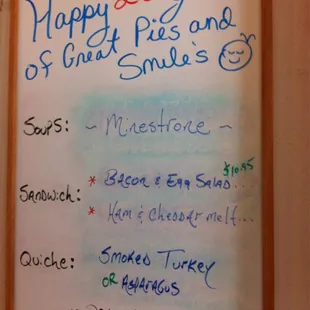 Happy
of Great Pies and
Smile's
Soups: ~ Minestrone ~
$10.95
Sandwich: * Bacon & Egg Salad...
* Ham & Cheddar melt...
Quiche: Smoked Turkey
OR ASPARAGUS